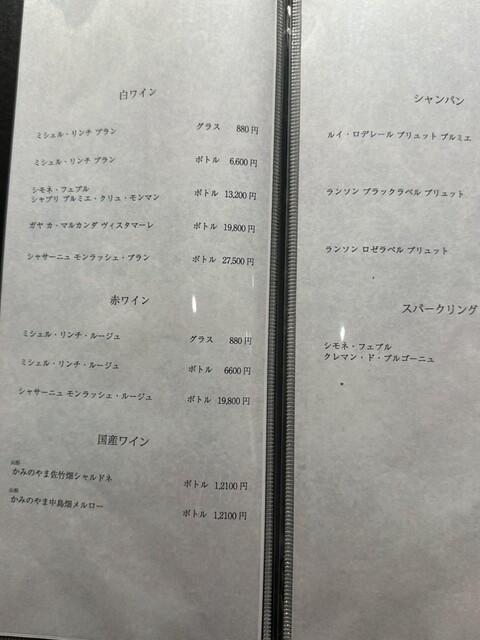 白ワイン
ミシェル・リンチ ブラン グラス 880円
ミシェル・リンチ ブラン ボトル 6,600円
シモネ・フェブル
シャブリ プルミエ・クリュ・モンマン ボトル 13,200円
ガヤ カ・マルカンダ ヴィスタマーレ ボトル 19,800円
シャサーニュ モンラッシェ・ブラン ボトル 27,500円
赤ワイン
ミシェル・リンチ・ルージュ グラス 880円
ミシェル・リンチ・ルージュ ボトル 6600円
シャサーニュ モンラッシェ・ルージュ ボトル 19,800円
国産ワイン
かみのやま佐竹畑シャルドネ ボトル 1,2100円
かみのやま中島畑メルロー ボトル 1,2100円
シャンパン
ルイ・ロデレール ブリュット プルミエ
ランソン ブラックラベル ブリュット
ランソン ロゼラベル ブリュット
スパークリング
シモネ・フェブル
クレマン・ド・ブルゴーニュ